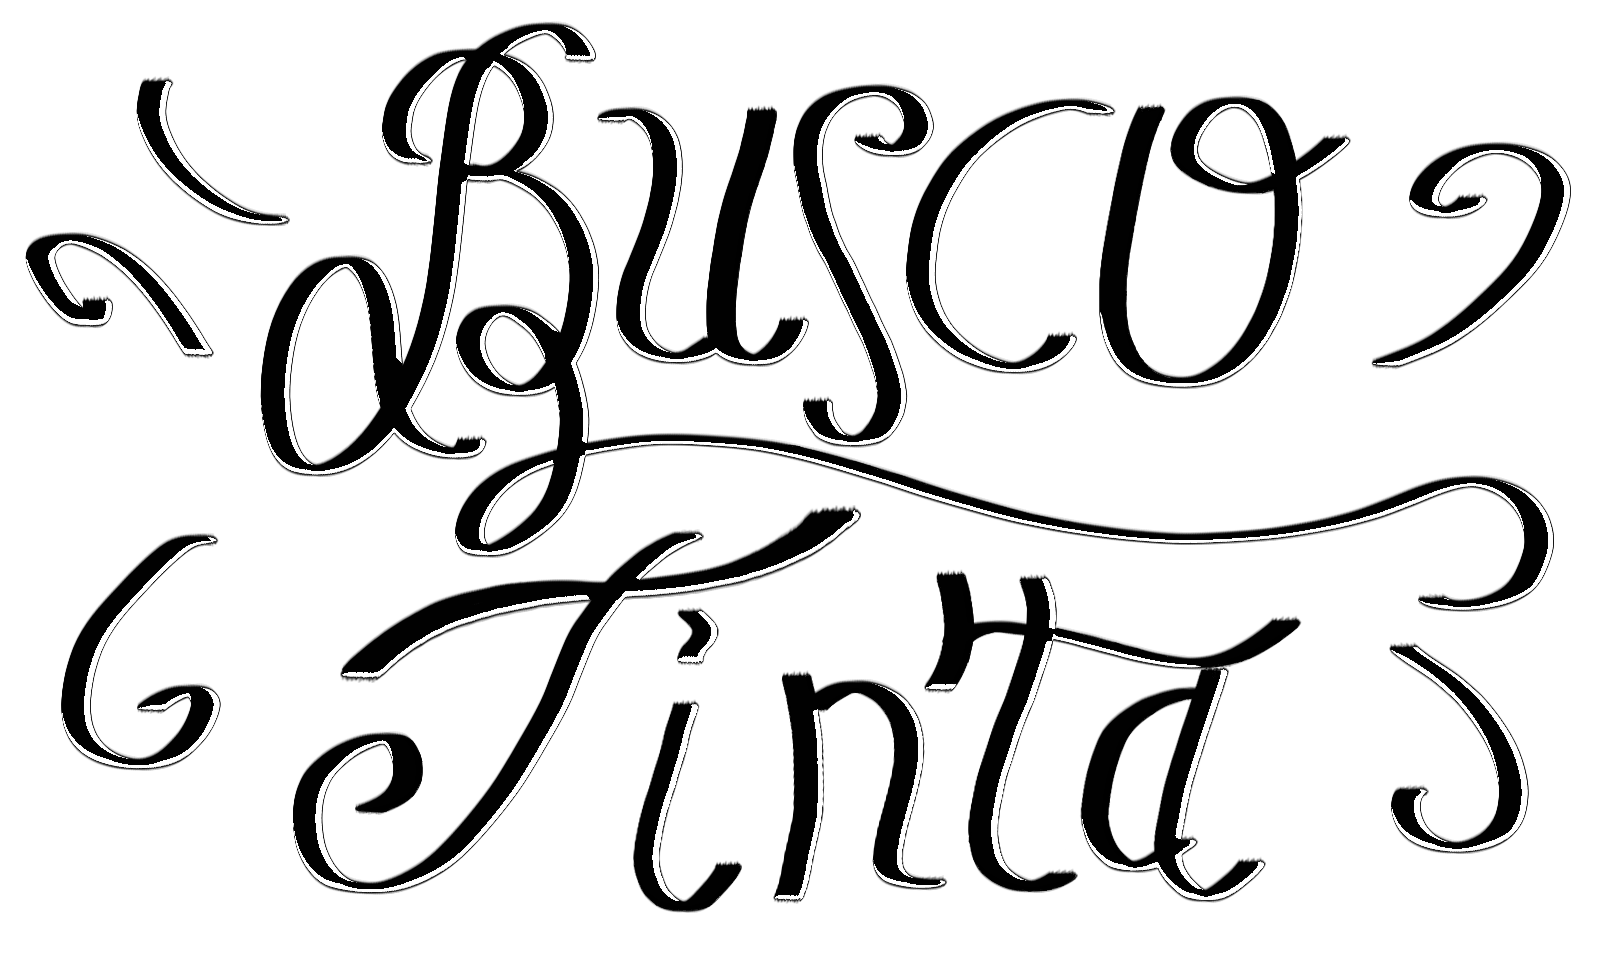 Busco
Tinta